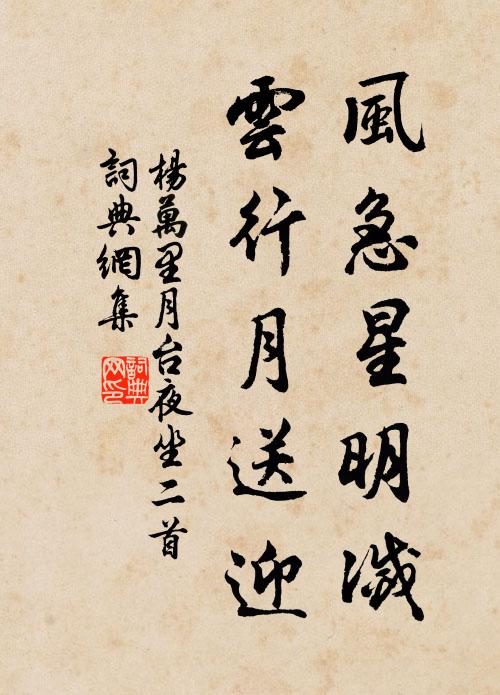 風急星明滅
雲行月送迎
楊萬里月台夜坐二首
詞典網集
詞典網印